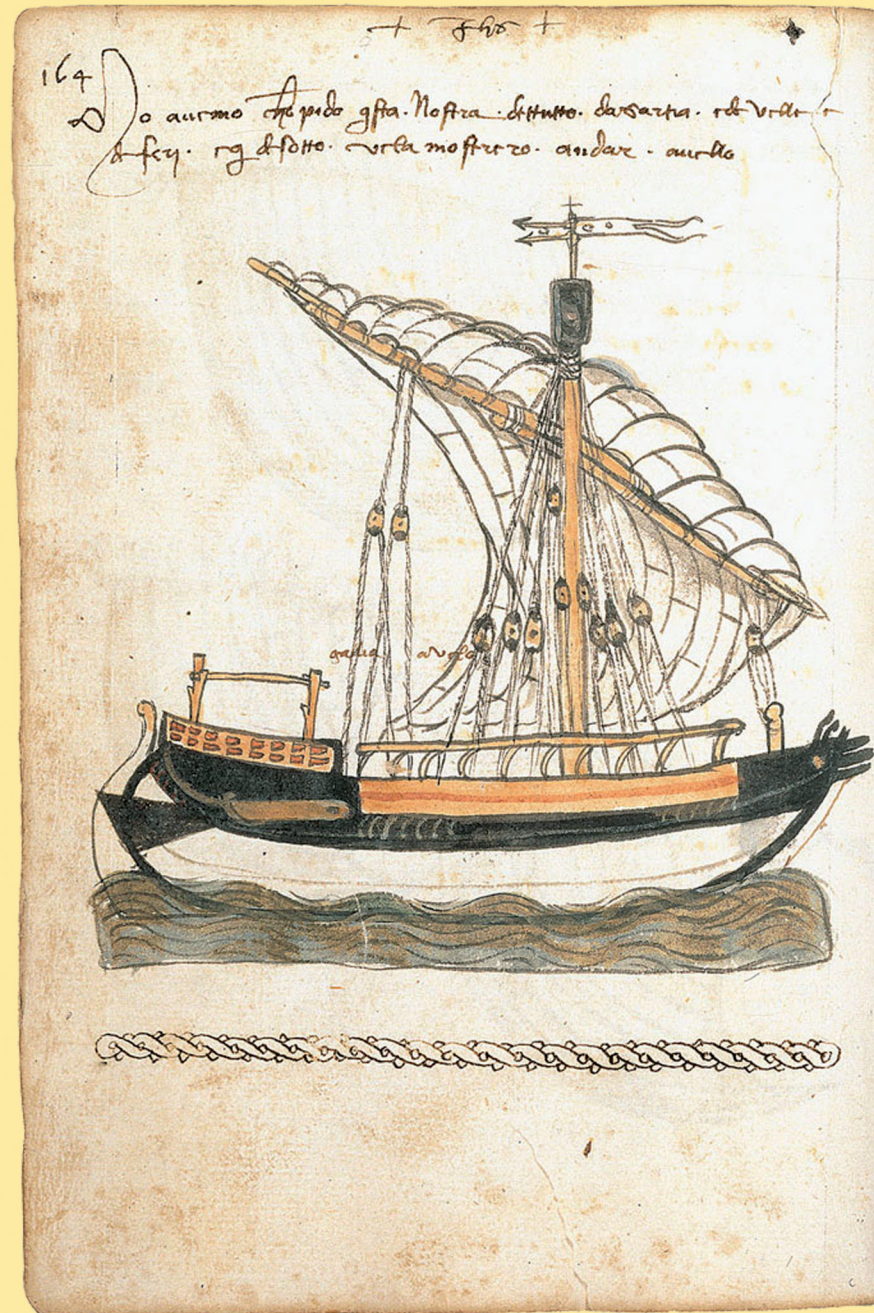 + Yhs +
164
No avemo chonpido questa. Nostra. dettutto. da sartia. ede velle e
de ferj. e qj desotto. vela mostrero. andar. avello
galia avela